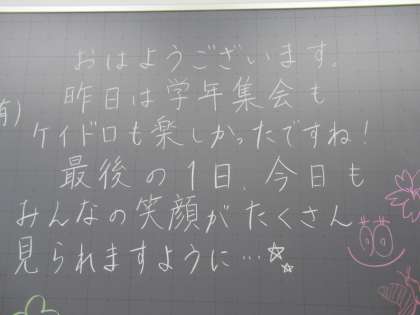 おはようございます。
昨日は学年集会も
ケイドロも楽しかったですね!
最後の1日、今日も
みんなの笑顔がたくさん
見られますように…☆☆